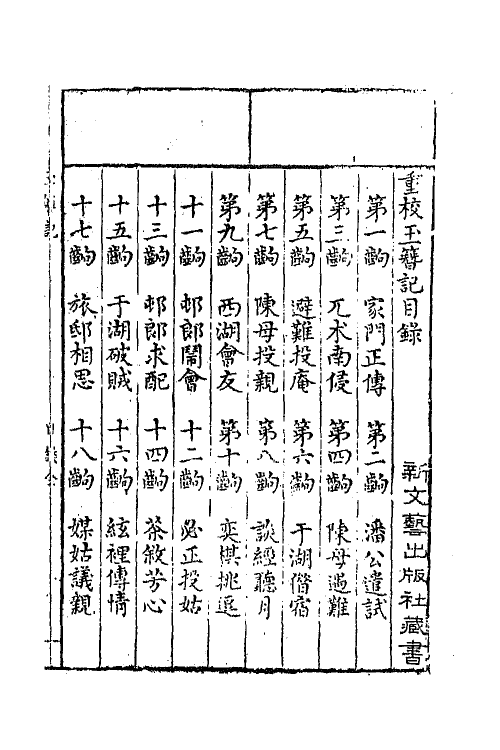 重校玉簪記目錄
新文藝出版社藏書
第一齣 家門正傳 第二齣 潘公遣試
第三齣 兀朮南侵 第四齣 陳母遇難
第五齣 避難投庵 第六齣 于湖借宿
第七齣 陳母投親 第八齣 談經聽月
第九齣 西湖會友 第十齣 奕棋挑逗
十一齣 邨郎鬧會 十二齣 必正投姑
十三齣 邨郎求配 十四齣 茶敘芳心
十五齣 于湖破賊 十六齣 絃裡傳情
十七齣 旅邸相思 十八齣 媒姑議親